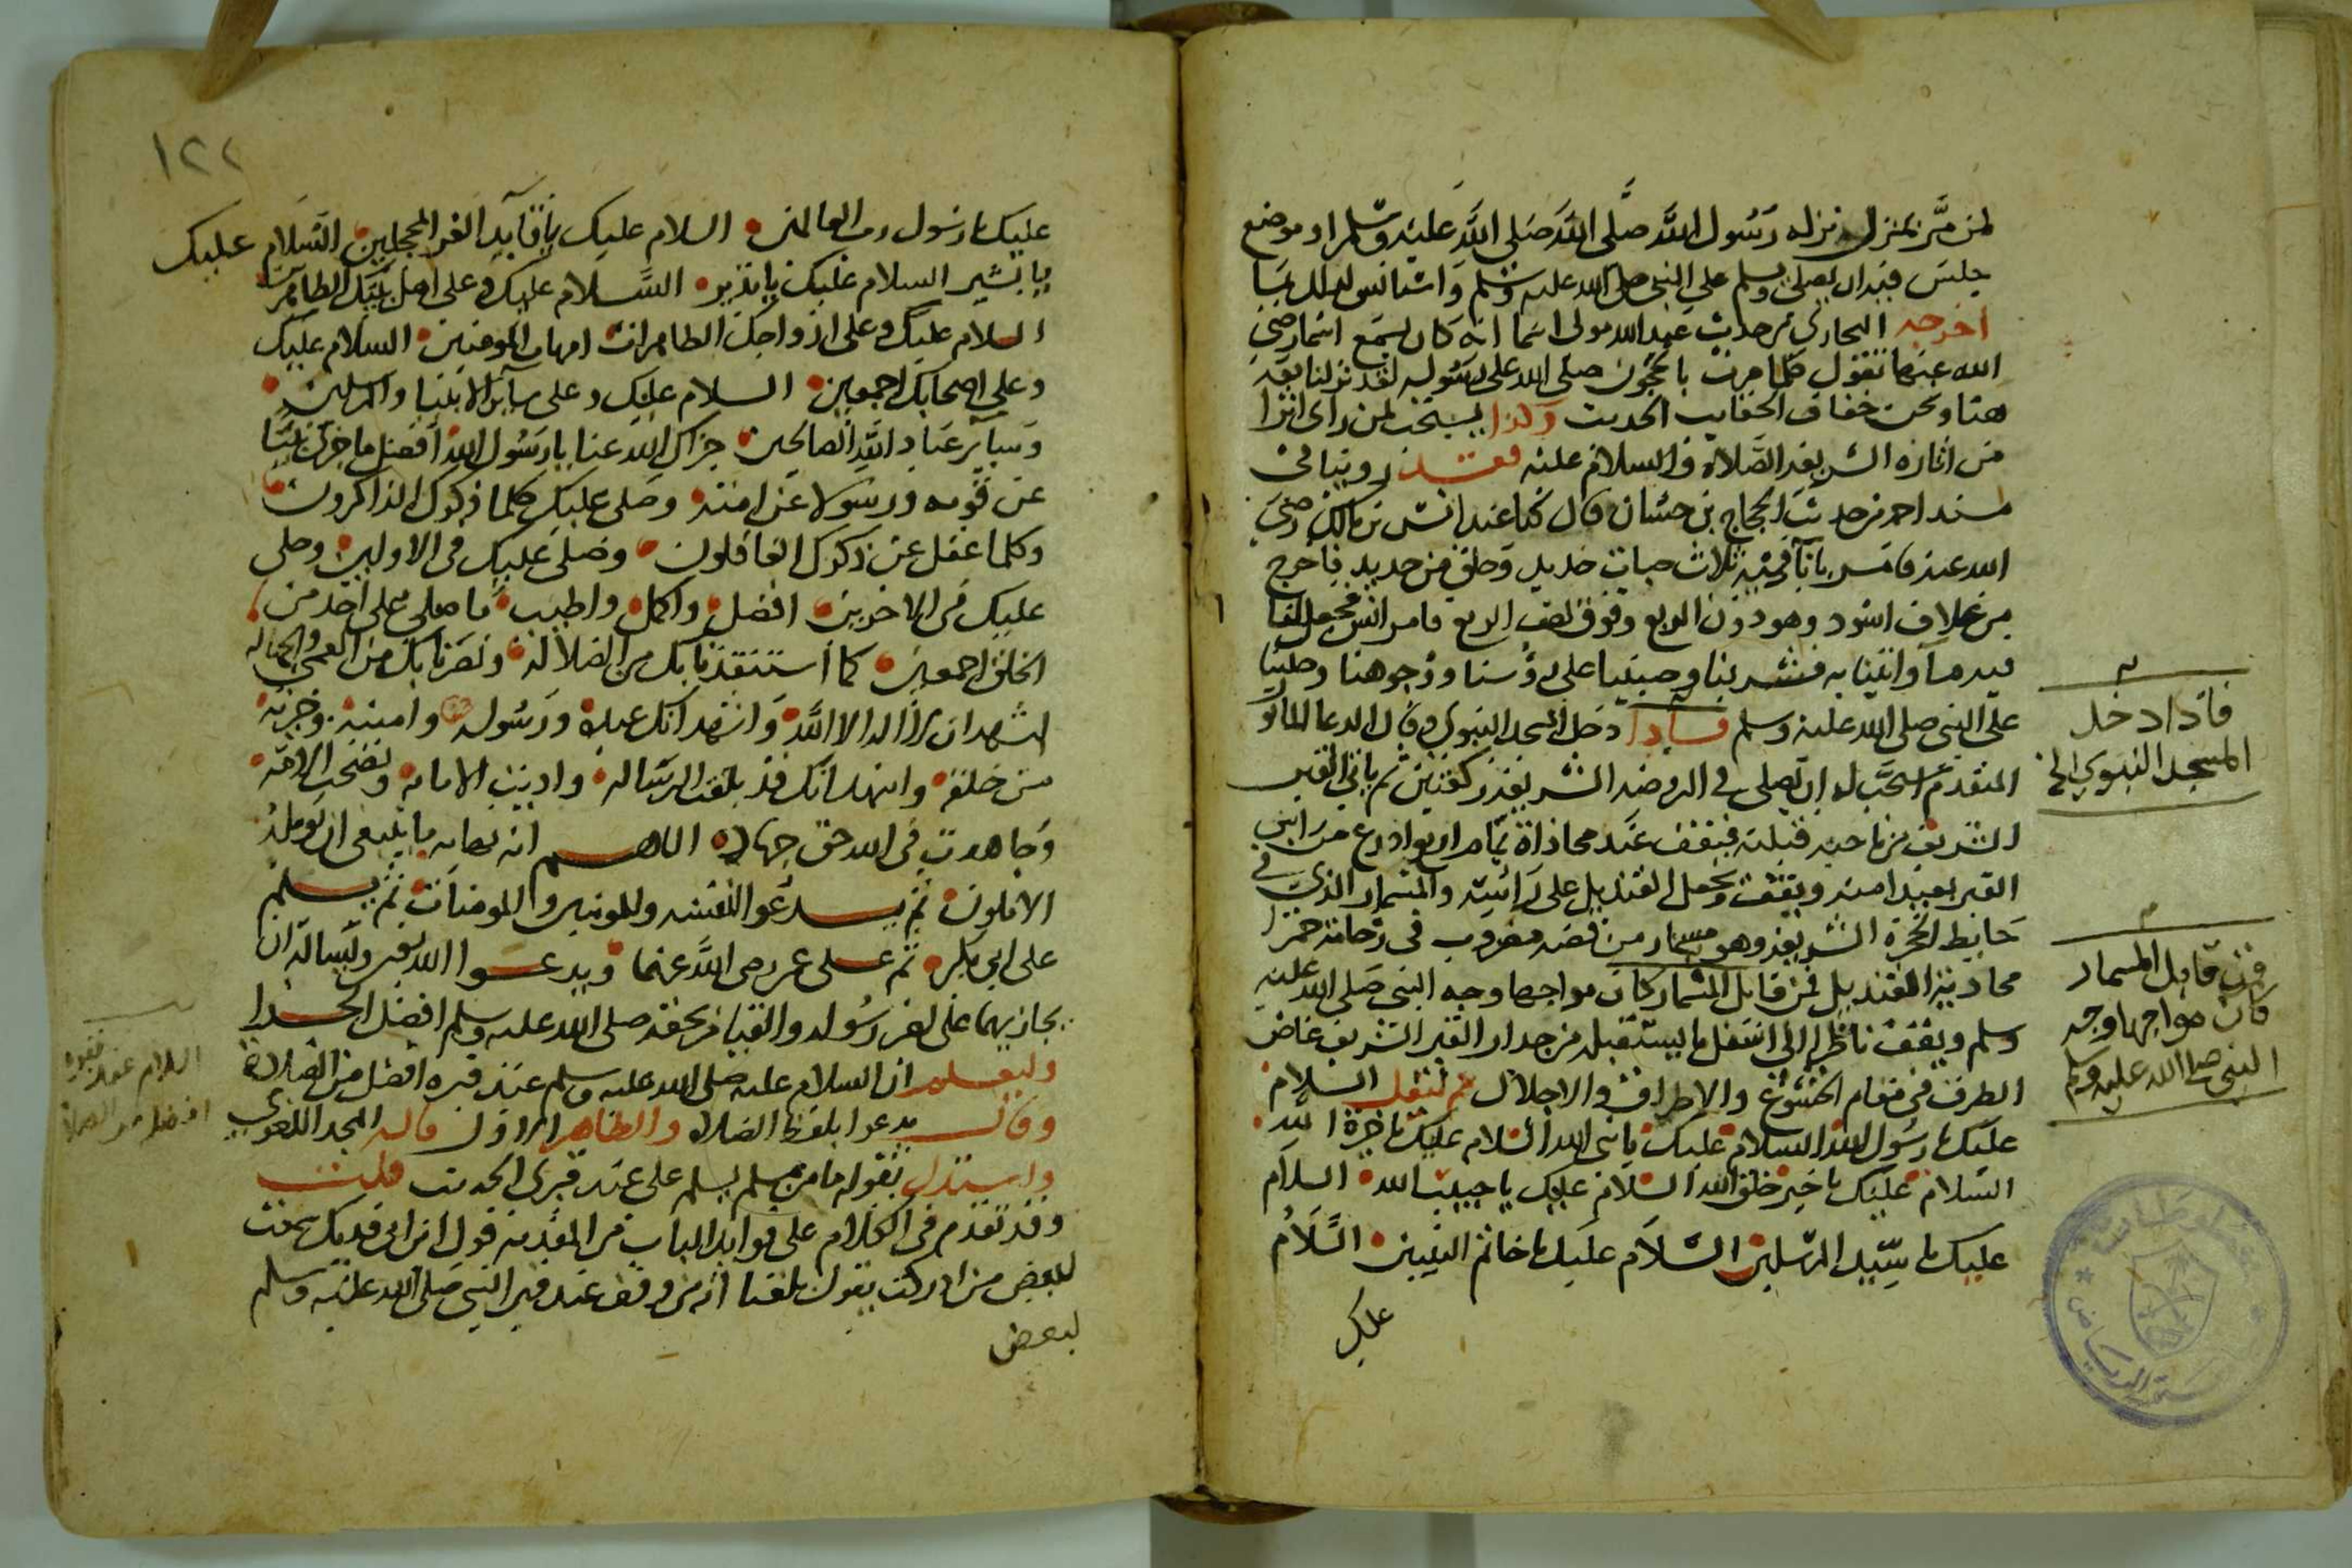 لمن مر بمنزل نزله رسول الله صلى الله صلى الله عليه وسلم او موضع
جلس فيه ان يصلي ويسلم على النبي صلى الله عليه وسلم واستانس لذلك بما
اخرجه البخاري من حديث عبد الله مولى اسما انه كان يسمع اسما رضي
الله عنها تقول كلما مرت بالحجون صلى الله على رسوله لقد نزلنا معه
هنا ونحن خفاف الحقايب الحديث وكذا يستحب لمن راى اثرا
من اثاره الشريفه الصلاه والسلام عليه فقد روينا في
مسند احمد من حديث الحجاج بن حسان قال كنا عند انس بن مالك رضي
الله عنه فامر باناء فيه ثلاث ضبات حديد وحلق من حديد فاخرج
من غلاف اسود وهو دون الربع وفوق نصف الربع فامر انس فجعل لنا
فيه ماء واتينا به فشربنا وصببنا على رؤسنا ووجوهنا وصلينا
على النبي صلى الله عليه وسلم فاذا دخل المسجد النبوي وقال الدعا الماثور
المتقدم استحب له ان يصلي في الروضه الشريفه ركعتين ثم ياتي القبر
الشريف من ناحيه قبلته فيقف عند محاذاة تمام اربع اذرع من راس
القبر بعيدا منه ويقف ويجعل القنديل على رأسه والمسمار الذي في
حايط الحجرة الشريفه وهو مسمار من فضه مضروب في رخامة حمرا
محاذية القنديل فمن قابل المسمار كان مواجها وجه النبي صلى الله عليه
وسلم ويقف ناظرا الى اسفل ما يستقبله من جدار القبر الشريف غاض
الطرف في مقام الخشوع والاطراق والاجلال ثم ليقل السلام
عليك يا رسول الله السلام عليك يا نبي الله السلام عليك يا خيرة الله
السلام عليك يا خير خلق الله السلام عليك يا حبيب الله السلام
عليك يا سيد المرسلين السلام عليك يا خاتم النبيين السلام
عليك
فاذا دخل
المسجد النبوي الخ
فمن قابل المسمار
كان مواجها وجه
النبي صلى الله عليه وسلم
١٢٢
عليك يا رسول رب العالمين السلام عليك يا قايد الغر المحجلين السلام عليك
يا بشير السلام عليك يا نذير السلام عليك وعلى اهل بيتك الطاهرين
السلام عليك وعلى ازواجك الطاهرات امهات المومنين السلام عليك
وعلى اصحابك اجمعين السلام عليك وعلى ساير الانبيا والمرسلين
وساير عباد الله الصالحين جزاك الله عنا يا رسول الله افضل ما جزى نبيا
عن قومه ورسولا عن امته وصلى عليك كلما ذكرك الذاكرون
وكلما غفل عن ذكرك الغافلون وصلى عليك في الاولين وصلى
عليك في الاخرين افضل واكمل واطيب ما صلى على احد من
الخلق اجمعين كما استنقذنا بك من الضلاله وبصرنا بك من العمى والجهاله
اشهد ان لا اله الا الله واشهد انك عبده ورسوله وامينه وخيرته
من خلقه واشهد انك قد بلغت الرساله واديت الامانه ونصحت الامه
وجاهدت في الله حق جهاده اللهم اته نهايه ما ينبغي ان يؤمله
الاملون ثم يدعو لنفسه وللمومنين والمومنات ثم يسلم
على ابي بكر ثم على عمر رضي الله عنهما ويدعوا الله ويساله ان
يجازيهما على نصر رسوله والقيام بحقه صلى الله عليه وسلم افضل الجزا
وليعلم ان السلام عليه صلى الله عليه وسلم عند قبره افضل من الصلاة
وقال يدعوا بلفظ الصلاه والظاهر الاول قاله المجد اللغوي
واستدل بقوله ما من مسلم يسلم علي عند قبري الحديث قلت
وقد تقدم في الكلام على فوايد الباب من المقدمه قول ابن ابي فديك سمعت
بعض من ادركت يقول بلغنا انه من وقف عند قبر النبي صلى الله عليه وسلم
لبعض
السلام عند قبره
افضل من الصلاة